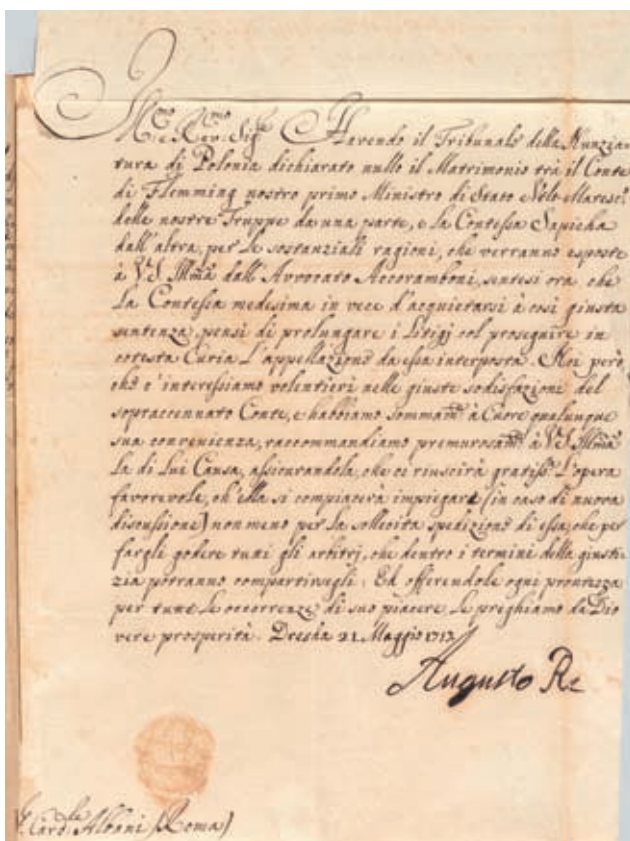 Ill.mo e Rev.mo Sig.re Havendo il Tribunale della Nunzia-
tura di Polonia dichiarato nullo il Matrimonio trà il Conte
di Flemming nostro primo Ministro di Stato e Velt-Maresc:
delle nostre Truppe da una parte, e la Contessa Sapieha
dall'altra, per le sostanziali ragioni, che verranno esposte
à V.S. Ill.ma dall'Avvocato Accoramboni, sentesi ora che
la Contessa medesima in vece d'acquietarsi à così giusta
sentenza, pensi di prolungare i Litigj col proseguire in
cotesta Curia l'appellazione da essa interposta. Noi però,
che c'interessiamo volentieri nelle giuste sodisfazione del
sopraccennato Conte, e habbiamo sommam.te à Cuore qualunque
sua convenienza, raccommandiamo premurosam.te à V.S. Ill.ma
la di lui Causa, assicurandola, che ci riuscirà gratiss.a l'opera
favorevole, ch'ella si compiacerà impiegare (in caso di nuova
discussione) non meno per la sollecita spedizione di essa, che per
fargli godere tutti gli arbitrj, che dentro i termini della giusti-
zia potranno compartirsegli. Ed offerendole ogni prontezza
per tutte le occorrenze di suo piacere, le preghiamo da Dio
vere prosperità. Dresda 21 Maggio 1715
Augusto Re
Card.le Albani (Roma)